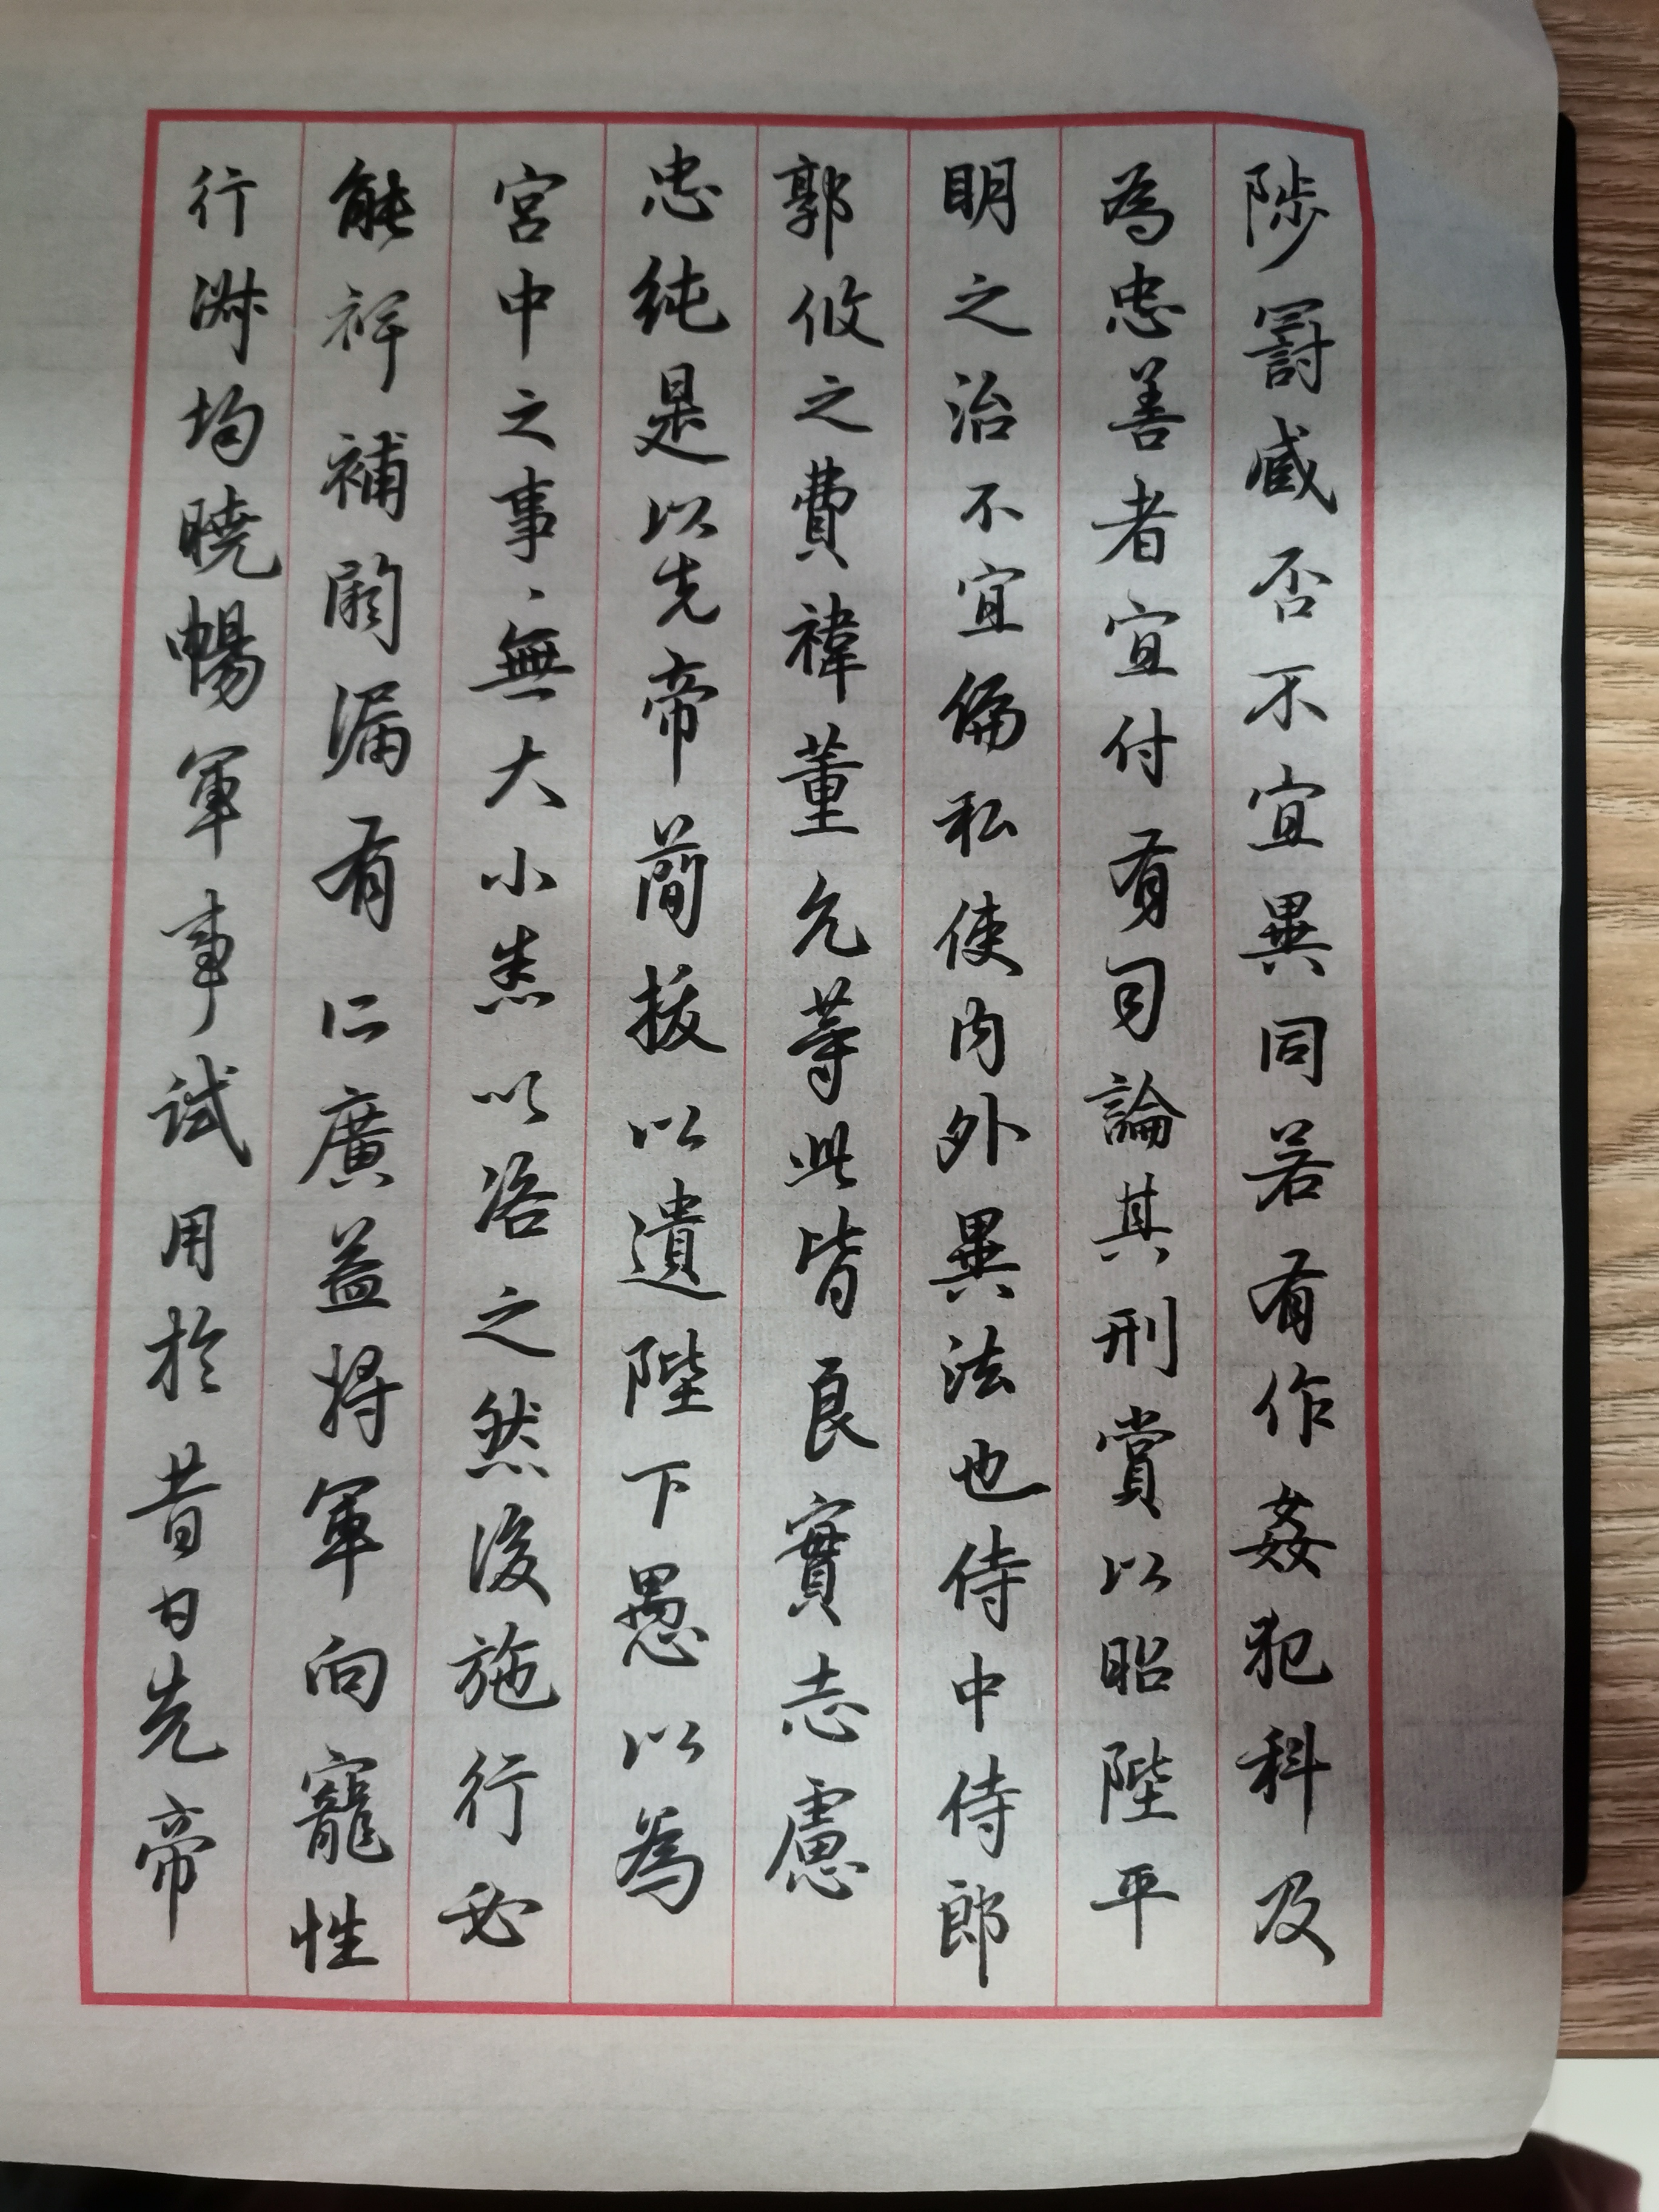 陟罰臧否不宜異同若有作姦犯科及
為忠善者宜付有司論其刑賞以昭陛平
明之治不宜偏私使内外異法也侍中侍郎
郭攸之費禕董允等此皆良實志慮
忠純是以先帝簡拔以遺陛下愚以為
宮中之事、無大小悉以咨之然後施行必
能裨補闕漏有仁廣益将軍向寵性
行淑均曉暢軍事試用於昔日先帝